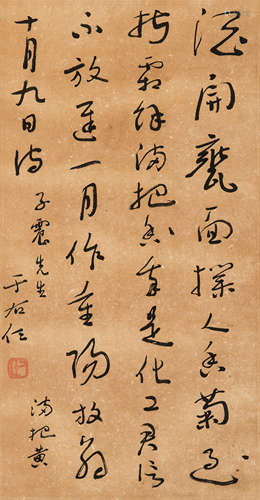 酒開甕面撲人香菊
折霜餘滿把香是化工君信
不放遲一月作重陽放翁
十月九日詩
子震先生
于右任
滿把黃